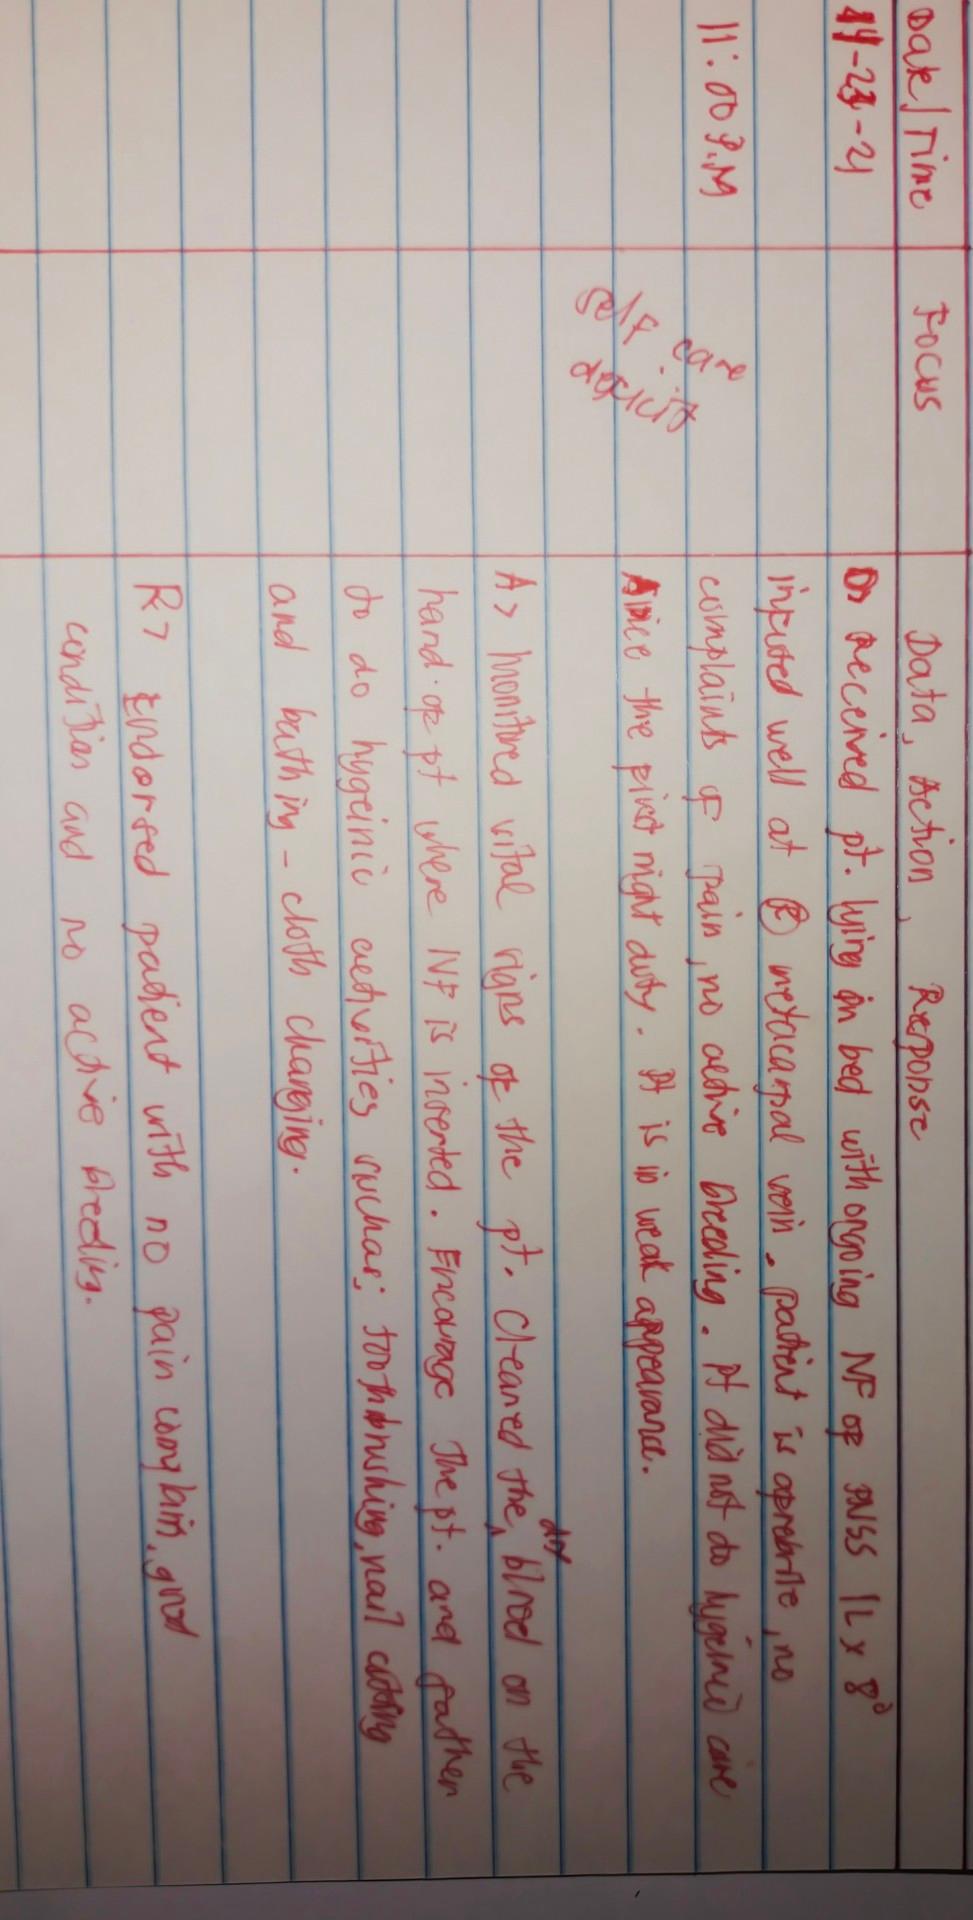 Date/Time Focus Data, Action, Response
11-23-21 D> Received pt. lying on bed with ongoing IVF of PNSS 1L x 8°
infused well at Ⓡ metacarpal vein. patient is afebrile, no
11:00 P.M complaints of pain, no active bleeding. Pt did not do hygeinic care
self care deficits
since the first night duty. Pt is in weak appearance.
A> Monitored vital signs of the pt. Cleaned the dry blood on the
hand of pt where IVF is inserted. Encourage The pt. and father
to do hygeinic activities such as; toothbrushing, nail cutting
and bathing - cloth changing.
R> Endorsed patient with no pain complain, good
condition and no active bleeding.